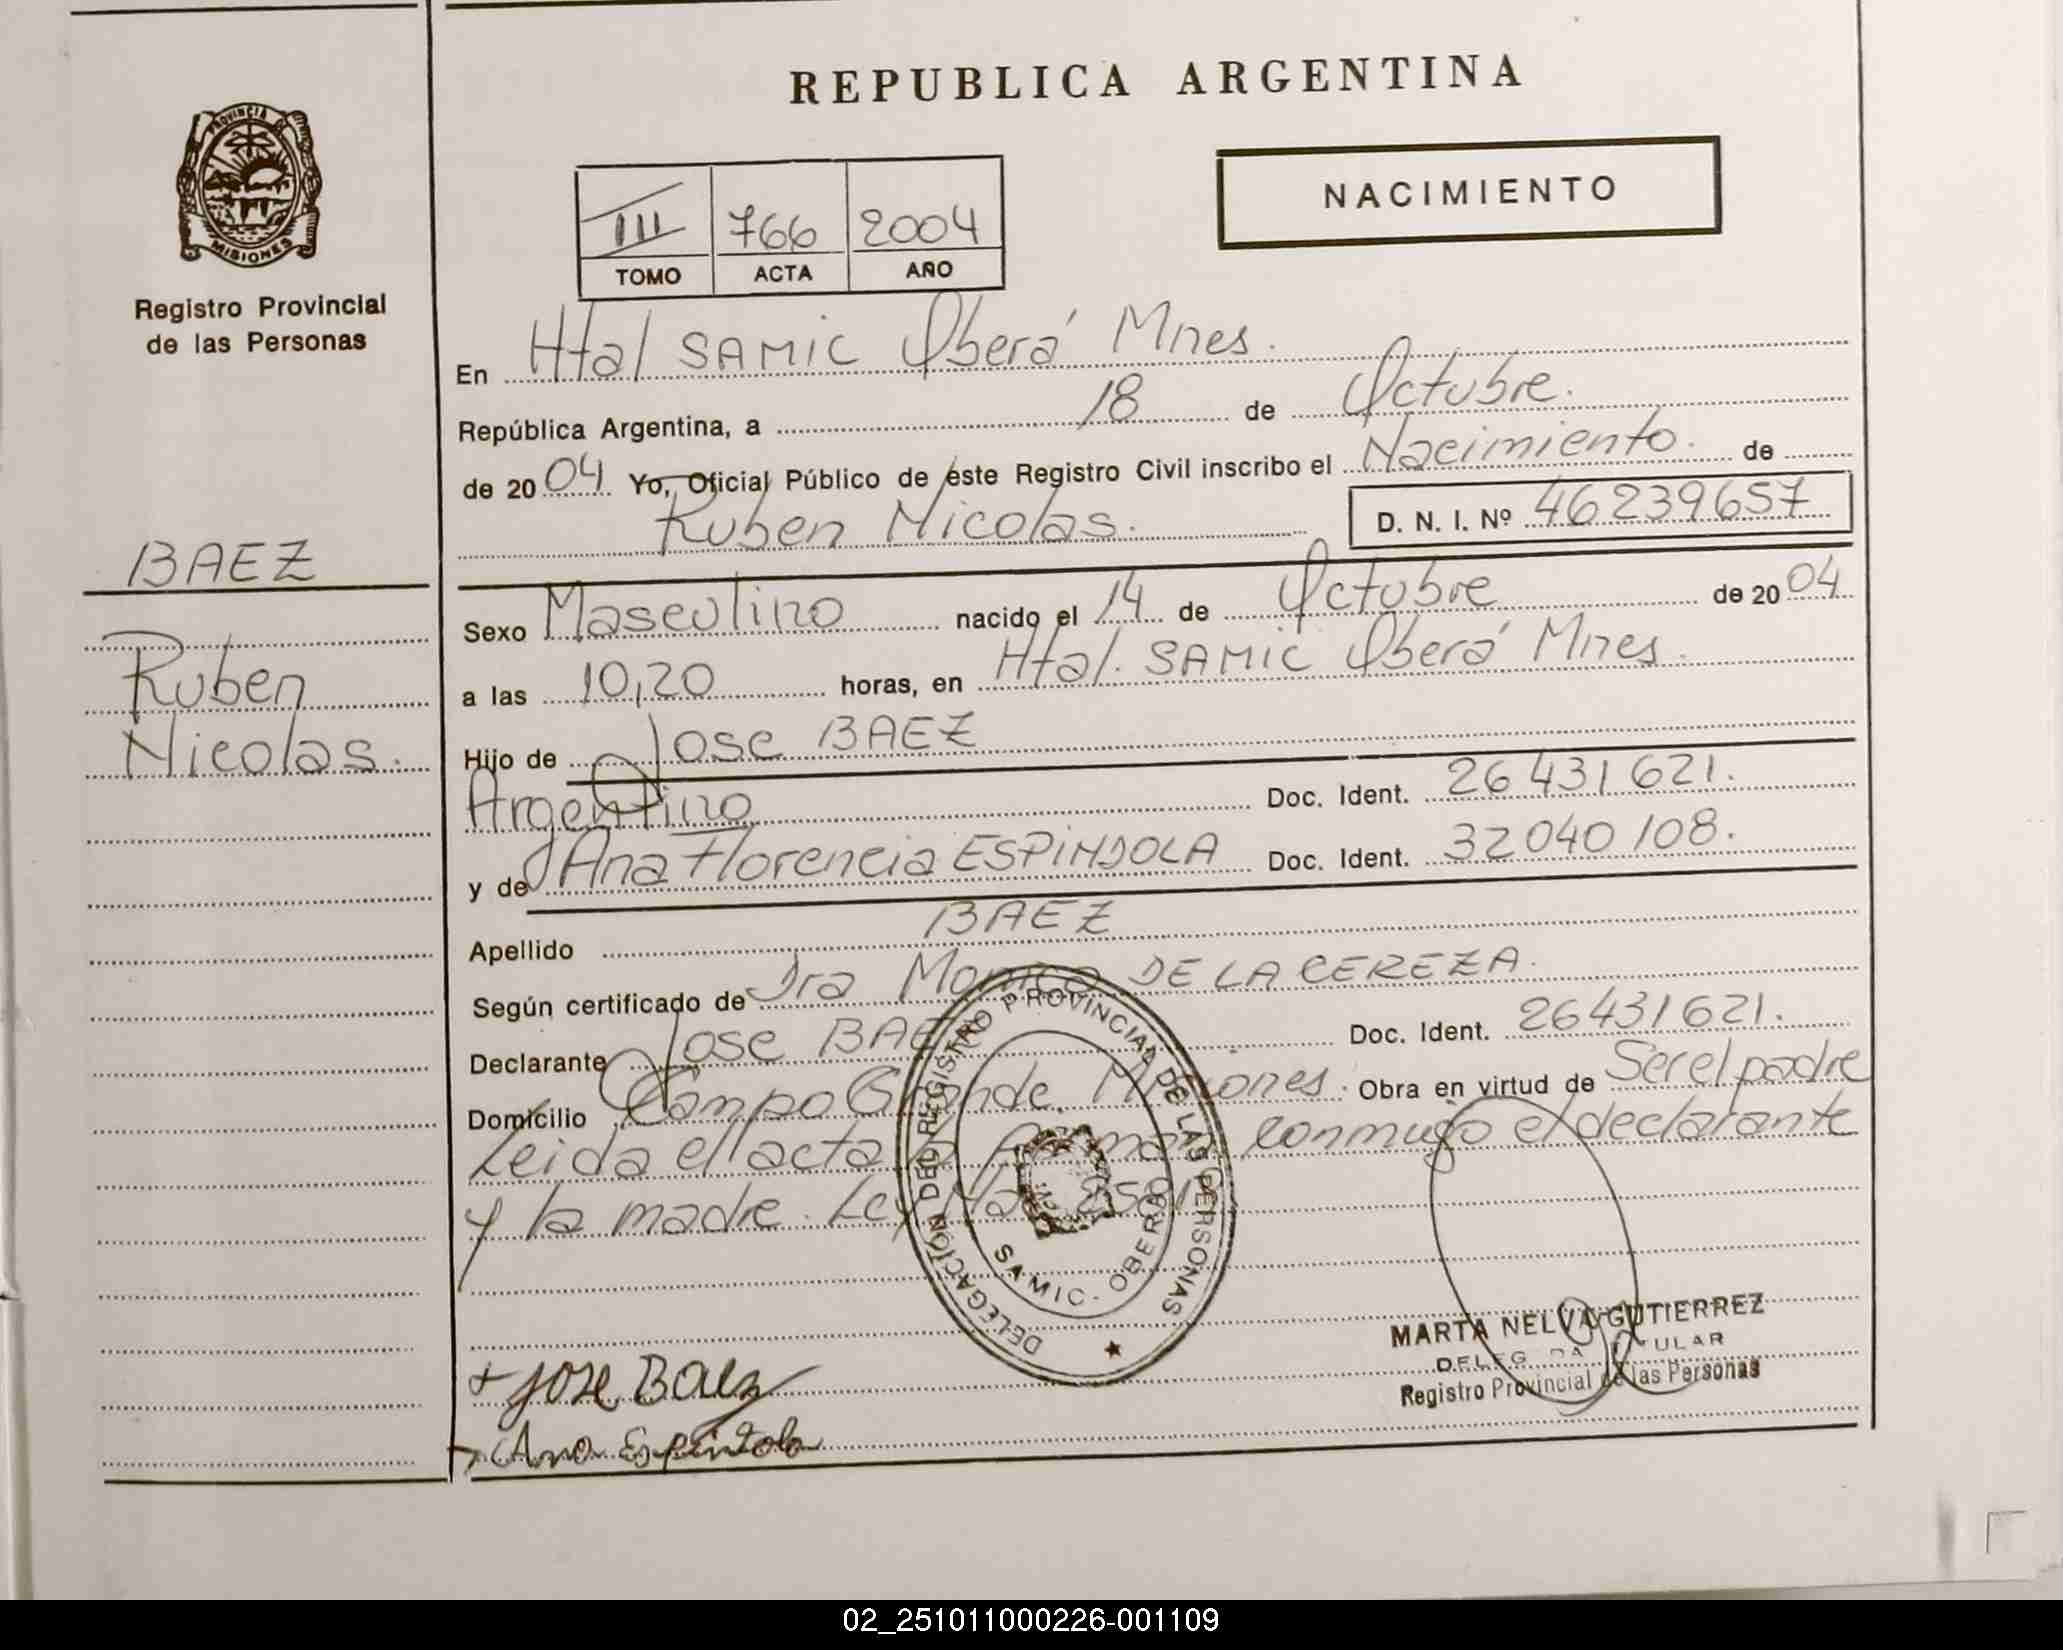 REPUBLICA ARGENTINA
PROVINCIA DE
MISIONES
Registro Provincial
de las Personas
NACIMIENTO
III 766 2004
TOMO ACTA AÑO
En Htal SAMIC Oberá Mnes.
República Argentina, a 18 de Octubre.
de 2004 Yo, Oficial Público de este Registro Civil inscribo el Nacimiento. de
Ruben Nicolas. D. N. I. Nº 46239657
BAEZ
Ruben
Nicolas.
Sexo Masculino nacido el 14 de Octubre de 2004
a las 10,20 horas, en Htal. SAMIC Oberá Mnes.
Hijo de Jose BAEZ
Argentino Doc. Ident. 26431621.
y de Ana Florencia ESPINDOLA Doc. Ident. 32040108.
Apellido BAEZ
Según certificado de Dra Monica DE LA CEREZA.
Declarante Jose BAEZ Doc. Ident. 26431621.
Domicilio Campo Grande. Misiones. Obra en virtud de Ser el padre
Leida el acta firman conmigo el declarante
y la madre. Ley
DELEGACIÓN DEL REGISTRO PROVINCIAL DE LAS PERSONAS
SAMIC - OBERA
MARTA NELVA GUTIERREZ
Registro Provincial de las Personas
Jose Baez
Ana Espindola
02_251011000226-001109